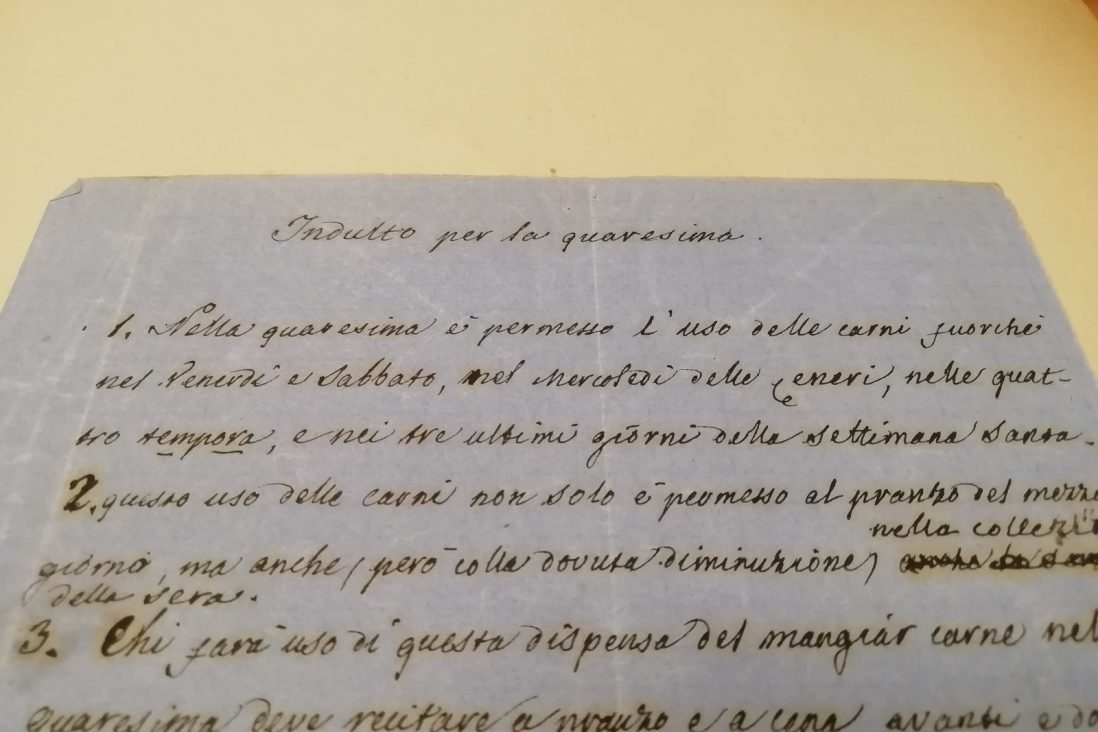 Indulto per la quaresima.
1. Nella quaresima è permesso l'uso delle carni fuorchè
nel Venerdì e Sabbato, nel Mercoledì delle Ceneri, nelle quat-
tro tempora, e nei tre ultimi giorni della Settimana Santa.
2. questo uso delle carni non solo è permesso al pranzo del mezzo
nella
giorno, ma anche (però colla dovuta diminuzione)
della sera.
3. Chi farà uso di questa dispensa del mangiar carne nel
quaresima deve recitare a pranzo e a cena avanti e do